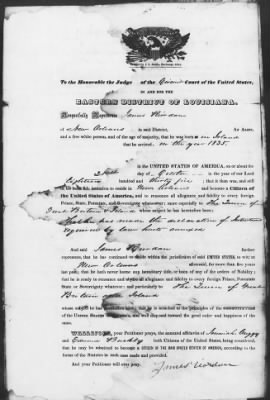 To the Honorable the Judge of the Circuit Court of the United States,
IN AND FOR THE
EASTERN DISTRICT OF LOUISIANA.
Respectfully Represents James Riordan
of New Orleans in said District, for
and a free white person, and of the age of majority, that he was born in Ireland
that he arrived in the year 1835.
in the UNITED STATES OF AMERICA, on or about the
day of October in the year of our Lord
Eighteen hundred and thirty five that it was, and still
is his intention to reside in New Orleans and become a Citizen of
the United States of America, and to renounce all allegiance and fidelity to every foreign
Prince, State, Potentate, and Sovereignty whatsoever; more especially to The Queen of
Great Britain & Ireland whose subject he has heretofore been;
has made the declaration of Intention
required by law hereto annexed
And said James Riordan further
represents, that he has continued to reside within the jurisdiction of said UNITED STATES to wit: in
New Orleans aforesaid, for more than five years
last past; that he hath never borne any hereditary title, or been of any of the orders of Nobility; that
he is ready to renounce and abjure all allegiance and fidelity to every foreign Prince, Potentate
State or Sovereignty whatsoever; and particularly to The Queen of Great
Britain and Ireland
whose subject he has
United States
and well disposed toward the good order and happiness of the
same.
WHEREFORE, your Petitioner prays, the annexed affidavits of Jeremiah
and both Citizens of the United States, being considered, that
he may be admitted to become A CITIZEN OF THE SAID UNITED STATES OF AMERICA, according to the
forms of the Statutes in such case made and provided.
And your Petitioner will ever pray.
James Riordan